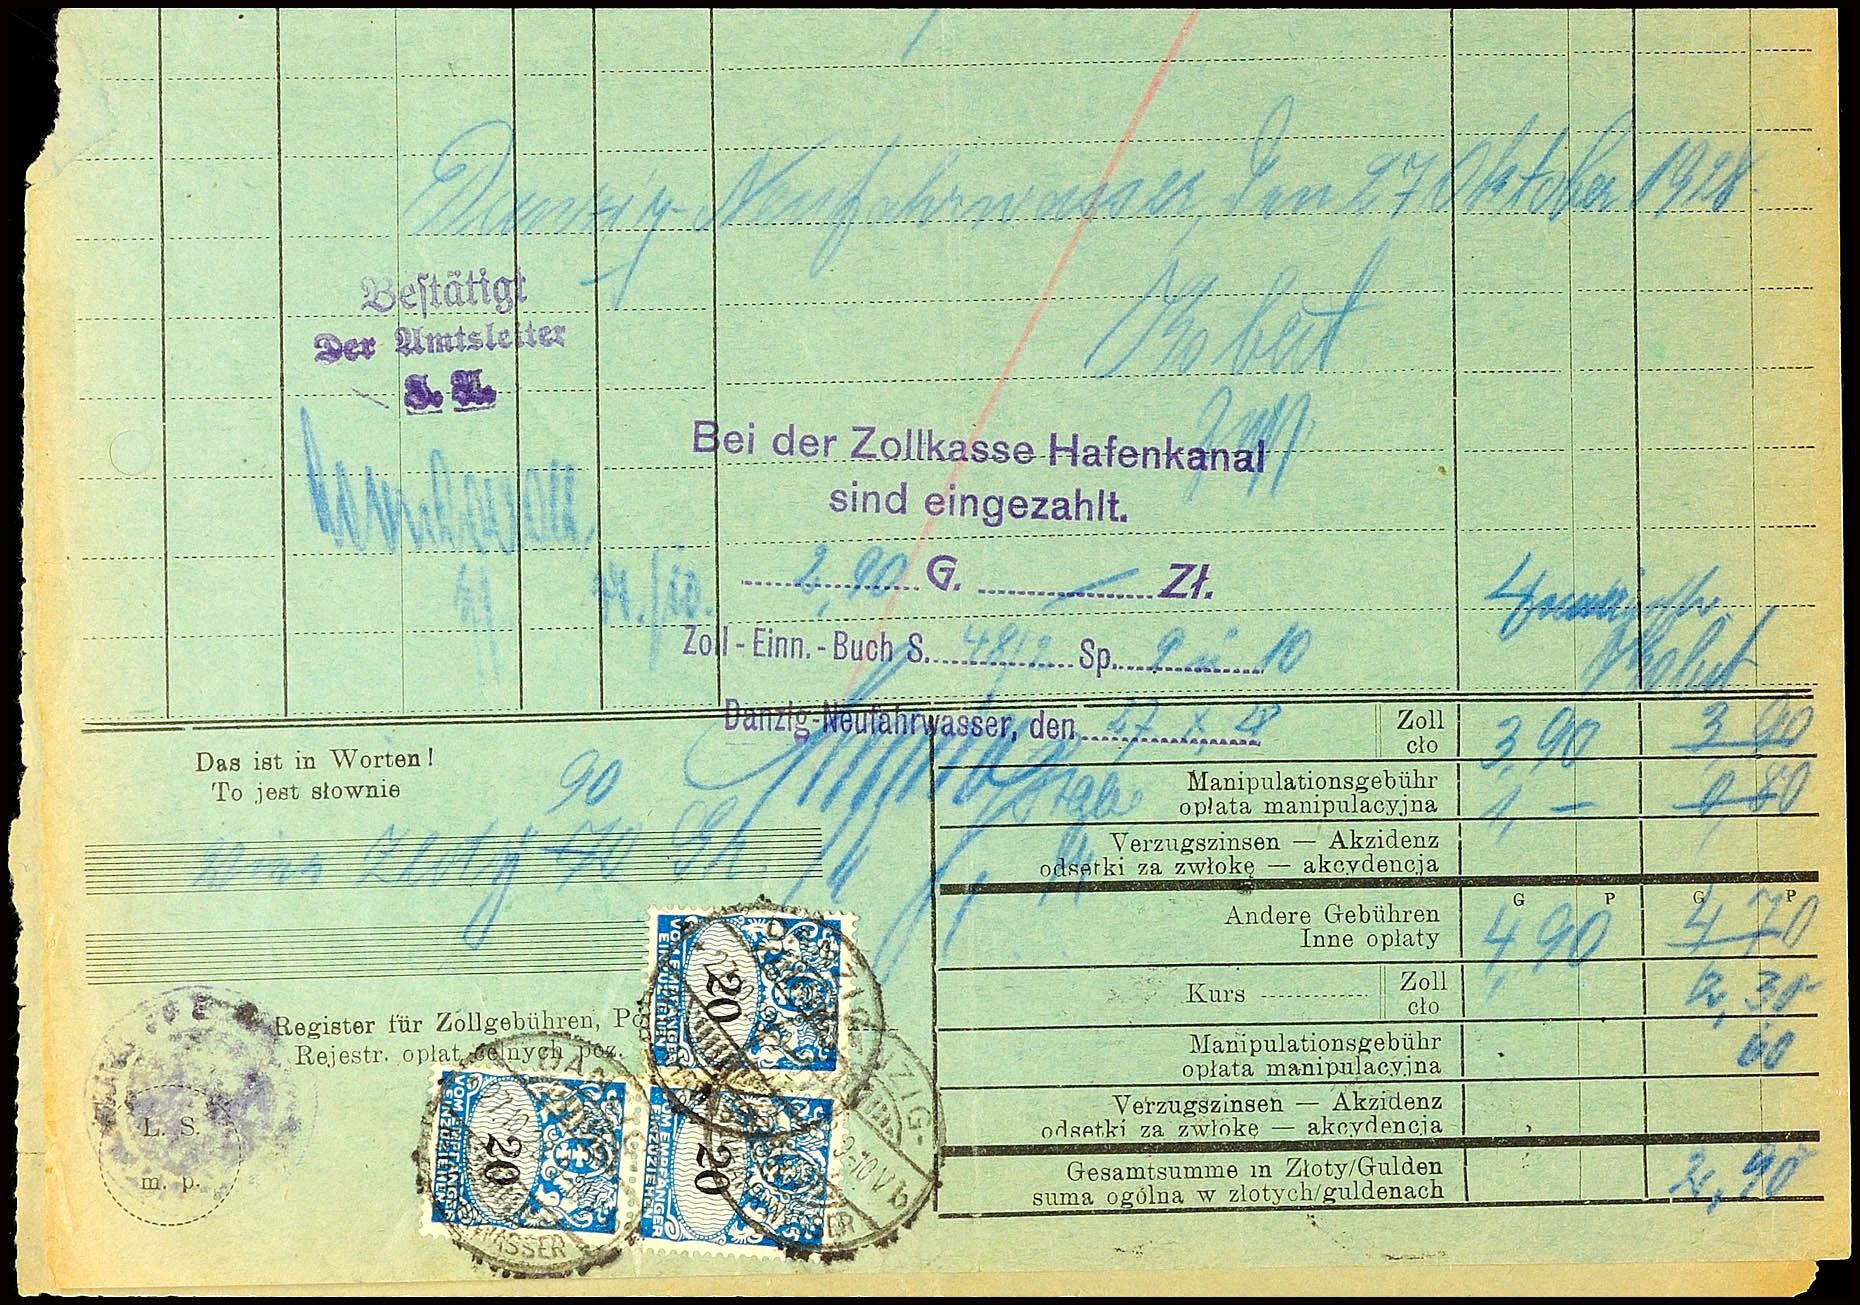 Danzig-Neufahrwasser, den 27 Oktober 1928.
Beſtätigt
Der Amtsleiter
J. A.
Bei der Zollkasse Hafenkanal
sind eingezahlt.
2,90 G. — Zł.
Zoll-Einn.-Buch S. Sp. 9 u 10
Danzig-Neufahrwasser, den 27 X 28
Das ist in Worten!
To jest słownie
90
Zloty 70 Gr.
Register für Zollgebühren, Po
Rejestr. opłat celnych poz.
L. S.
m. p.
Zoll 3,90 3,90
cło
Manipulationsgebühr 1,— 0,80
opłata manipulacyjna
Verzugszinsen — Akzidenz
odsetki za zwłokę — akcydencja
G P G P
Andere Gebühren 4,90 4,70
Inne opłaty
Kurs Zoll 2,30
cło
Manipulationsgebühr 60
opłata manipulacyjna
Verzugszinsen — Akzidenz
odsetki za zwłokę — akcydencja
Gesamtsumme in Złoty/Gulden 2,90
suma ogólna w złotych/guldenach
20
VOM EMPFÄNGER
EINZUZIEHEN
DANZIG
20
VOM EMPFÄNGER
EINZUZIEHEN
20
VOM EMPFÄNGER
EINZUZIEHEN
DANZIG-
9-10 V b